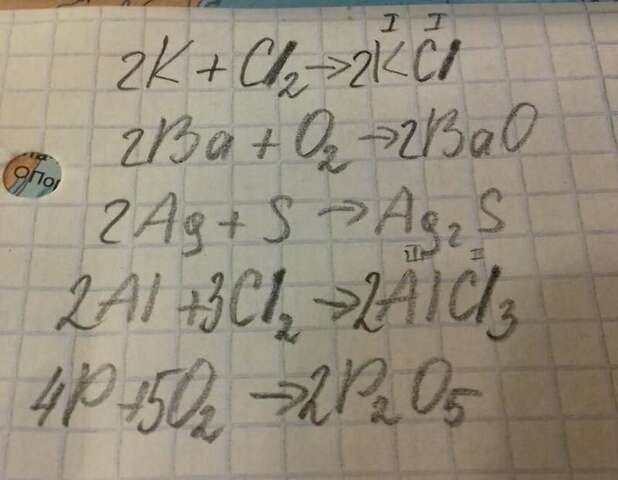 I I
2K + Cl₂ → 2KCl
2Ba + O₂ → 2BaO
2Ag + S → Ag₂S
2Al + 3Cl₂ → 2AlCl₃
4P + 5O₂ → 2P₂O₅